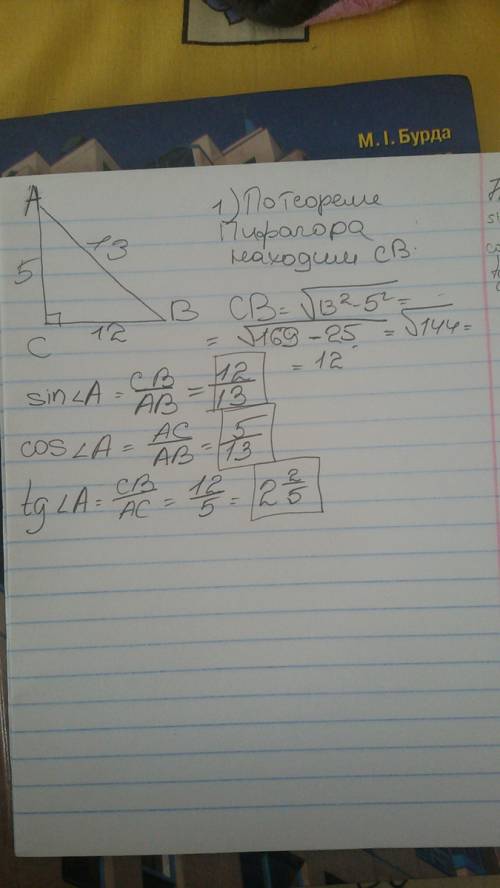 М. І. Бурда
A
13
5
B
12
C
1) По теореме
Пифагора
находим CB.
CB = √13² - 5² =
= √169 - 25 = √144 =
= 12
sin∠A = CB/AB = 12/13
cos∠A = AC/AB = 5/13
tg∠A = CB/AC = 12/5 = 2 2/5